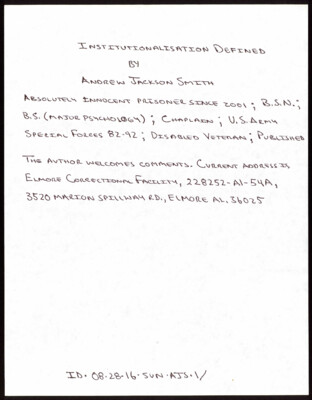 INSTITUTIONALISATION DEFINED
BY
ANDREW JACKSON SMITH
ABSOLUTELY INNOCENT PRISONER SINCE 2001; B.S.N.;
B.S. (MAJOR PSYCHOLOGY); CHAPLAIN; U.S. ARMY
SPECIAL FORCES 82-92; DISABLED VETERAN; PUBLISHED
THE AUTHOR WELCOMES COMMENTS. CURRENT ADDRESS IS
ELMORE CORRECTIONAL FACILITY, 228252-A1-54A,
3520 MARION SPILLWAY RD., ELMORE AL. 36025
ID. 08-28-16-SUN-AJS-1/